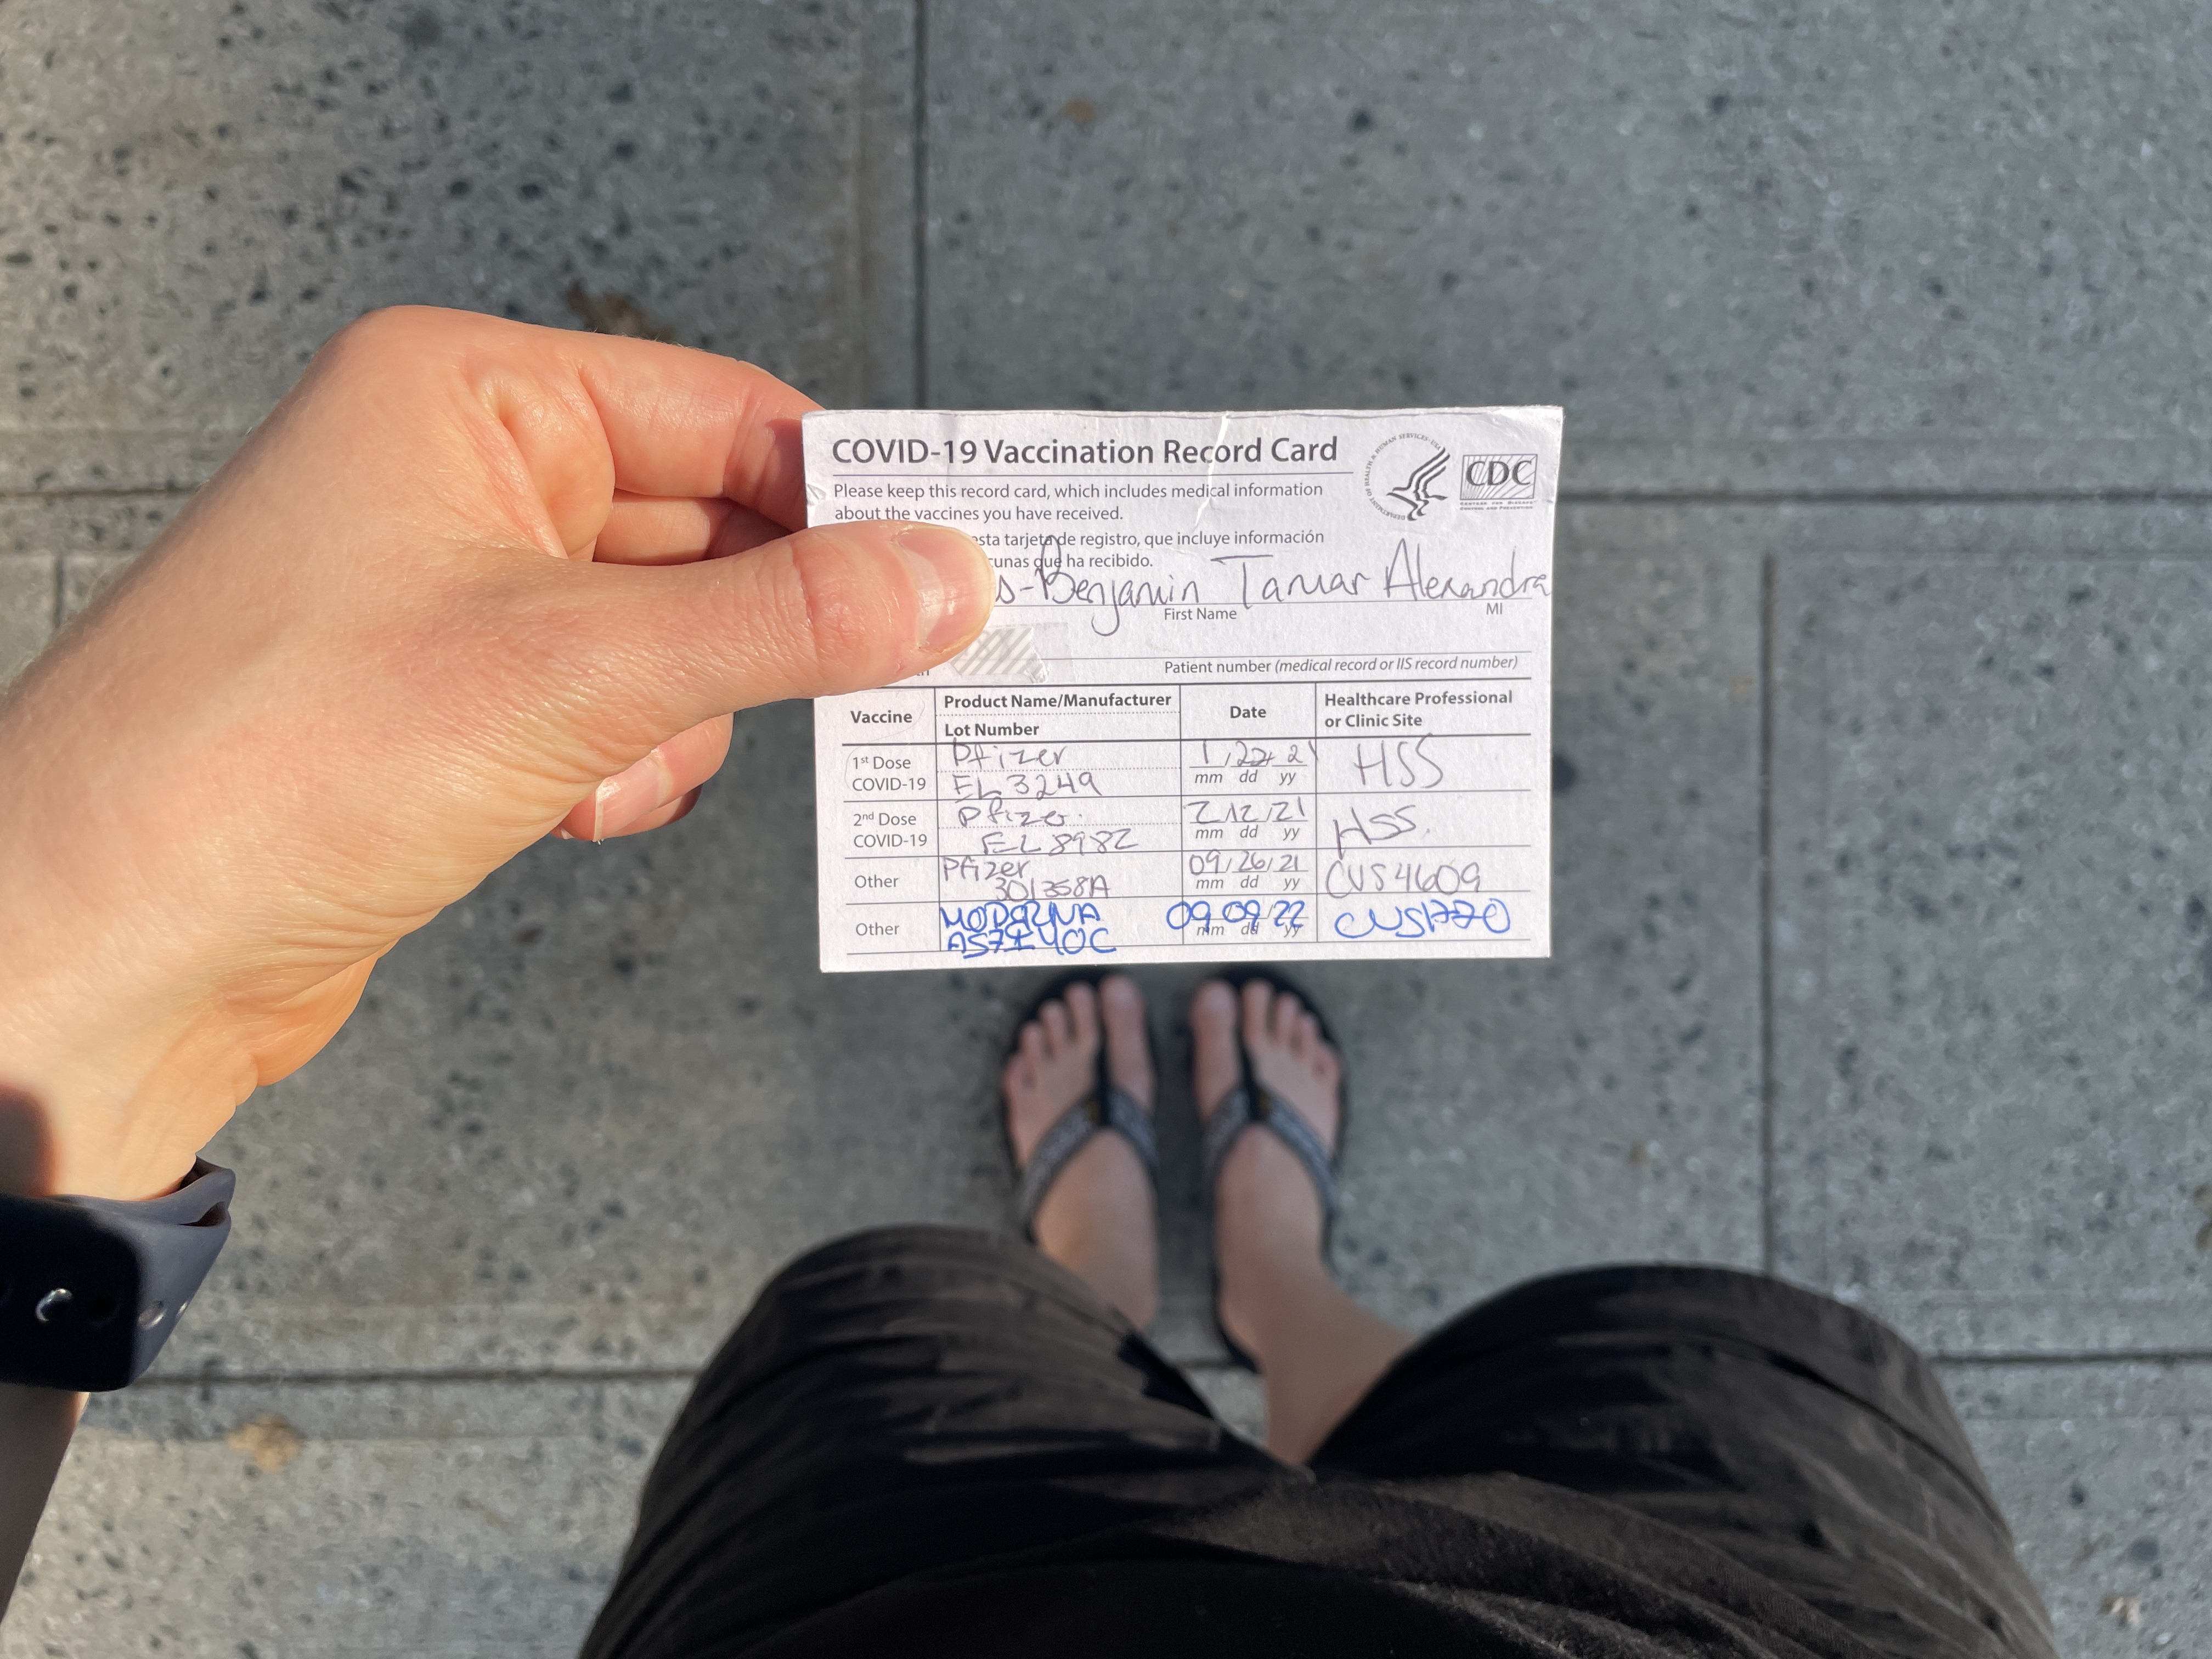 COVID-19 Vaccination Record Card
CDC
Please keep this record card, which includes medical information
about the vaccines you have received.
esta tarjeta de registro, que incluye información
que ha recibido.
s-Benjamin Tamar Alexandra
First Name MI
Patient number (medical record or IIS record number)
Vaccine Product Name/Manufacturer Date Healthcare Professional
Lot Number or Clinic Site
1st Dose Pfizer 1/22/21 HSS
COVID-19 EL3249 mm dd yy
2nd Dose Pfizer 2/12/21 HSS.
COVID-19 EL8982 mm dd yy
Other Pfizer 09/26/21 CVS4609
301358A mm dd yy
Other MODERNA 09 09/22
mm dd yy